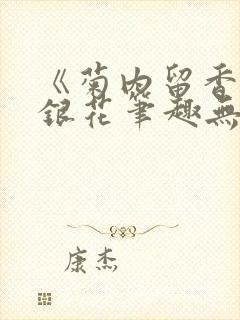 《菊内留香
銀花筆趣無
康杰